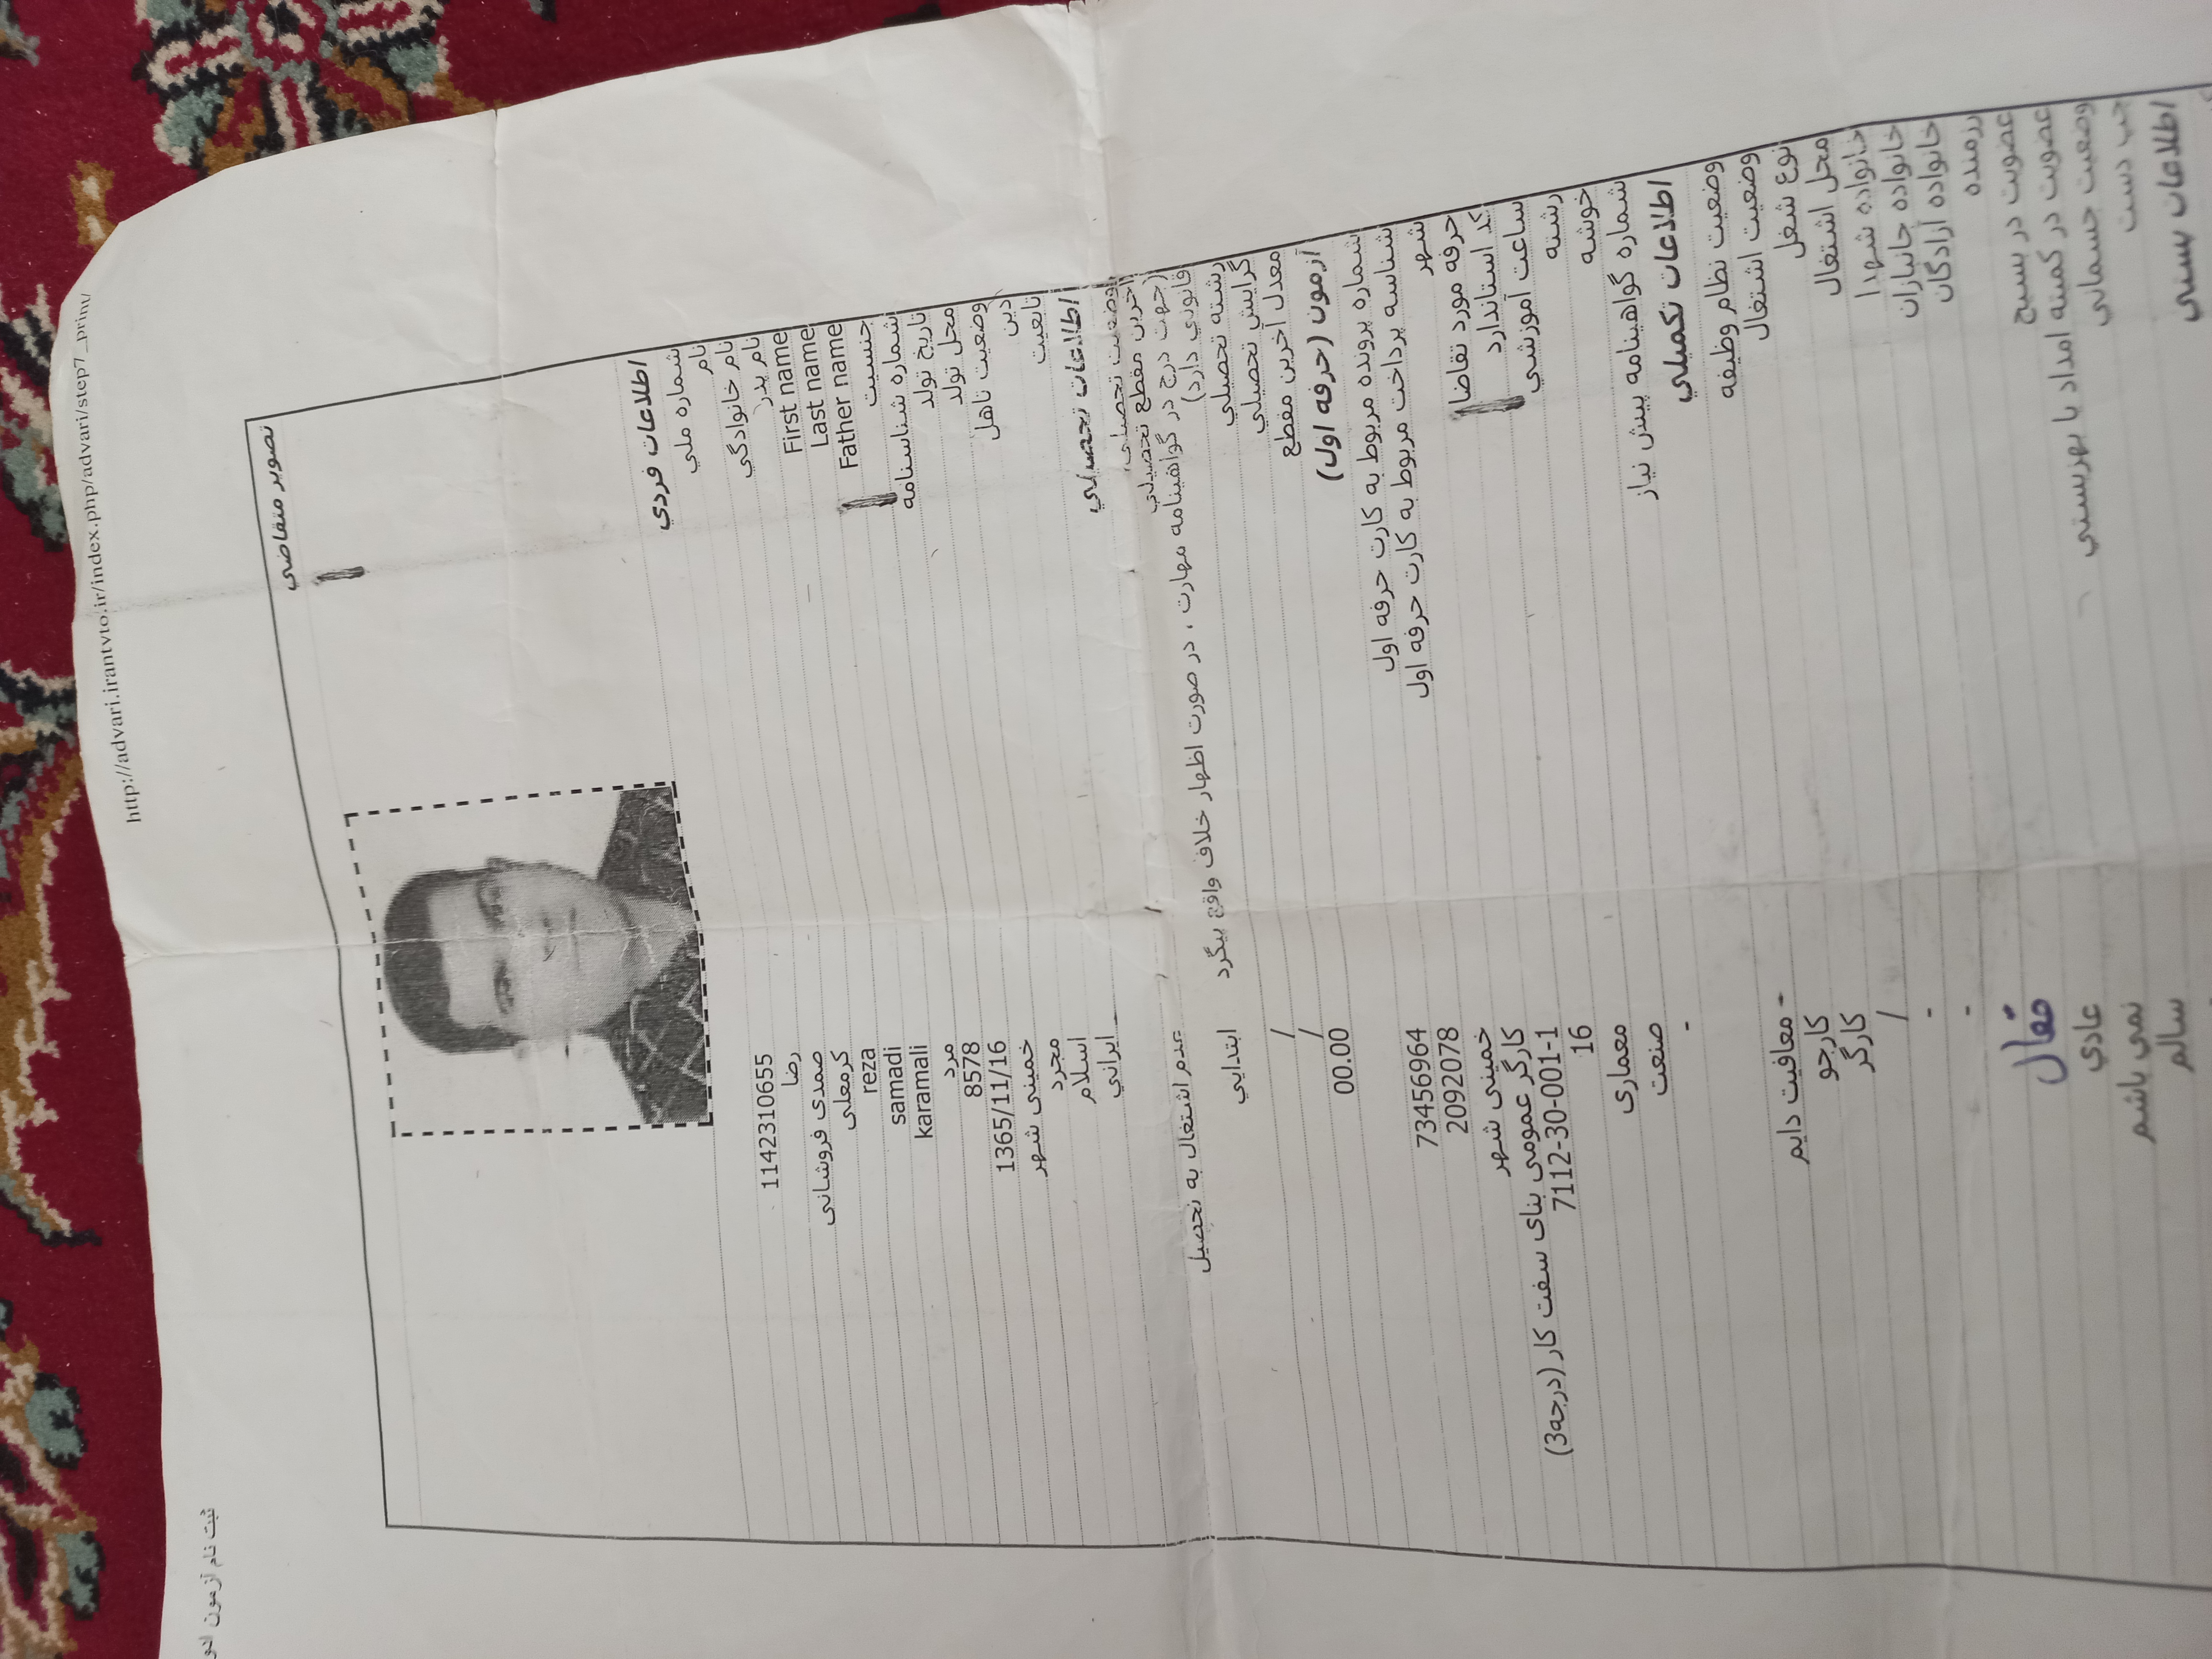 ثبت نام آزمون ادو
http://advari.irantvto.ir/index.php/advari/step7_print/
تصوير متقاضي
اطلاعات فردي
شماره ملي 1142310655
نام رضا
نام خانوادگي صمدی فروشانی
نام پدر کرمعلی
First name reza
Last name samadi
Father name karamali
جنسيت مرد
شماره شناسنامه 8578
تاريخ تولد 1365/11/16
محل تولد خمینی شهر
وضعيت تاهل مجرد
دين اسلام
تابعيت ايراني
اطلاعات تحصيلي
وضعيت تحصيلي عدم اشتغال به تحصيل
آخرين مقطع تحصيلي
(جهت درج در گواهينامه مهارت ، در صورت اظهار خلاف واقع پيگرد
قانوني دارد) ابتدايي
رشته تحصيلي /
گرايش تحصيلي /
معدل آخرين مقطع 00.00
آزمون (حرفه اول)
شماره پرونده مربوط به کارت حرفه اول 73456964
شناسه پرداخت مربوط به کارت حرفه اول 2092078
شهر خمینی شهر
حرفه مورد تقاضا کارگر عمومی بنای سفت کار (درجه3)
کد استاندارد 7112-30-001-1
ساعت آموزشي 16
رشته معماری
خوشه صنعت
شماره گواهينامه پيش نياز -
اطلاعات تکميلي
وضعيت نظام وظيفه معافيت دايم -
وضعيت اشتغال کارجو
نوع شغل کارگر
محل اشتغال /
خانواده شهدا -
خانواده جانبازان -
خانواده آزادگان
رزمنده
عضويت در بسيج فعال
عضويت در کميته امداد يا بهزيستي عادي
وضعيت جسماني نمی باشم
چپ دست سالم
اطلاعات پستي